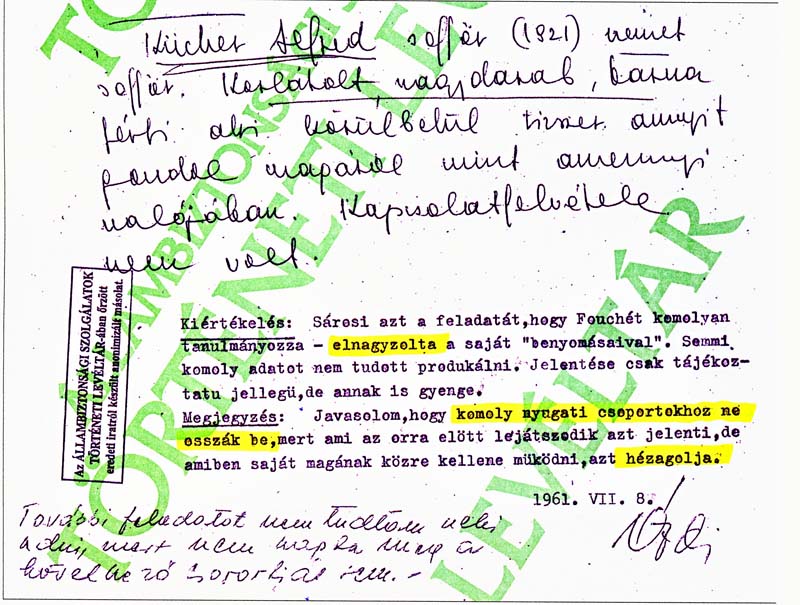 Kücher Alfred soffőr (1921) német
soffőr. Korlátolt nagydarab, barna
férfi aki körülbelül tízszer annyit
gondol magáról mint amennyi
valójában. Kapcsolatfelvétele
nem volt.
Kiértékelés: Sárosi azt a feladatát,hogy Fouchét komolyan
tanulmányozza - elnagyzolta a saját "benyomásaival". Semmi
komoly adatot nem tudott produkálni. Jelentése csak tájékoz-
tatu jellegü,de annak is gyenge.
Megjegyzés: Javasolom,hogy komoly nyugati csoportokhoz ne
osszák be,mert ami az orra elött lejátszodik azt jelenti,de
amiben saját magának közre kellene müködni,azt hézagolja.
1961. VII. 8.
További feladatot nem tudtam neki
adni, mert nem kapta meg a
következő sorsát sem.-
Az ÁLLAMBIZTONSÁGI SZOLGÁLATOK
TÖRTÉNETI LEVÉLTÁR-ában őrzött
eredeti iratról készült anonimizált másolat.
ÁLLAMBIZTONSÁGI
TÖRTÉNETI LEVÉLTÁR
LEVÉLTÁR